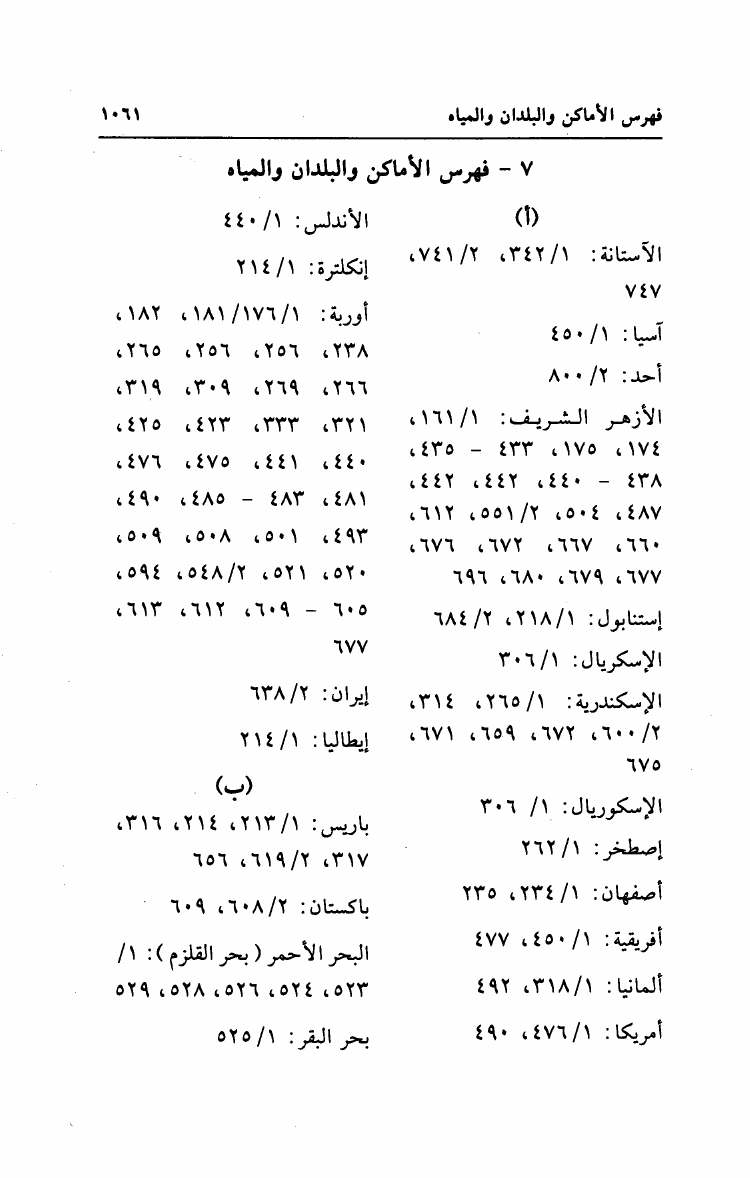 فهرس الأماكن والبلدان والمياه ١٠٦١
٧ - فهرس الأماكن والبلدان والمياه
(أ)
الآستانة: ١/ ٣٤٢، ٢/ ٧٤١،
٧٤٧
آسيا: ١/ ٤٥٠
أحد: ٢/ ٨٠٠
الأزهر الشريف: ١/ ١٦١،
١٧٤، ١٧٥، ٤٣٣ - ٤٣٥،
٤٣٨ - ٤٤٠، ٤٤٢، ٤٤٢،
٤٨٧، ٥٠٤، ٢/ ٥٥١، ٦١٢،
٦٦٠، ٦٦٧، ٦٧٢، ٦٧٦،
٦٧٧، ٦٧٩، ٦٨٠، ٦٩٦
إستنابول: ١/ ٢١٨، ٢/ ٦٨٤
الإسكريال: ١/ ٣٠٦
الإسكندرية: ١/ ٢٦٥، ٣١٤،
٢/ ٦٠٠، ٦٧٢، ٦٥٩، ٦٧١،
٦٧٥
الإسكوريال: ١/ ٣٠٦
إصطخر: ١/ ٢٦٢
أصفهان: ١/ ٢٣٤، ٢٣٥
أفريقية: ١/ ٤٥٠، ٤٧٧
ألمانيا: ١/ ٣١٨، ٤٩٢
أمريكا: ١/ ٤٧٦، ٤٩٠
الأندلس: ١/ ٤٤٠
إنكلترة: ١/ ٢١٤
أوربة: ١/ ١٧٦/ ١٨١، ١٨٢،
٢٣٨، ٢٥٦، ٢٥٦، ٢٦٥،
٢٦٦، ٢٦٩، ٣٠٩، ٣١٩،
٣٢١، ٣٣٣، ٤٢٣، ٤٢٥،
٤٤٠، ٤٤١، ٤٧٥، ٤٧٦،
٤٨١، ٤٨٣ - ٤٨٥، ٤٩٠،
٤٩٣، ٥٠١، ٥٠٨، ٥٠٩،
٥٢٠، ٥٢١، ٢/ ٥٤٨، ٥٩٤،
٦٠٥ - ٦٠٩، ٦١٢، ٦١٣،
٦٧٧
إيران: ٢/ ٦٣٨
إيطاليا: ١/ ٢١٤
(ب)
باريس: ١/ ٢١٣، ٢١٤، ٣١٦،
٣١٧، ٢/ ٦١٩، ٦٥٦
باكستان: ٢/ ٦٠٨، ٦٠٩
البحر الأحمر (بحر القلزم): ١/
٥٢٣، ٥٢٤، ٥٢٦، ٥٢٨، ٥٢٩
بحر البقر: ١/ ٥٢٥